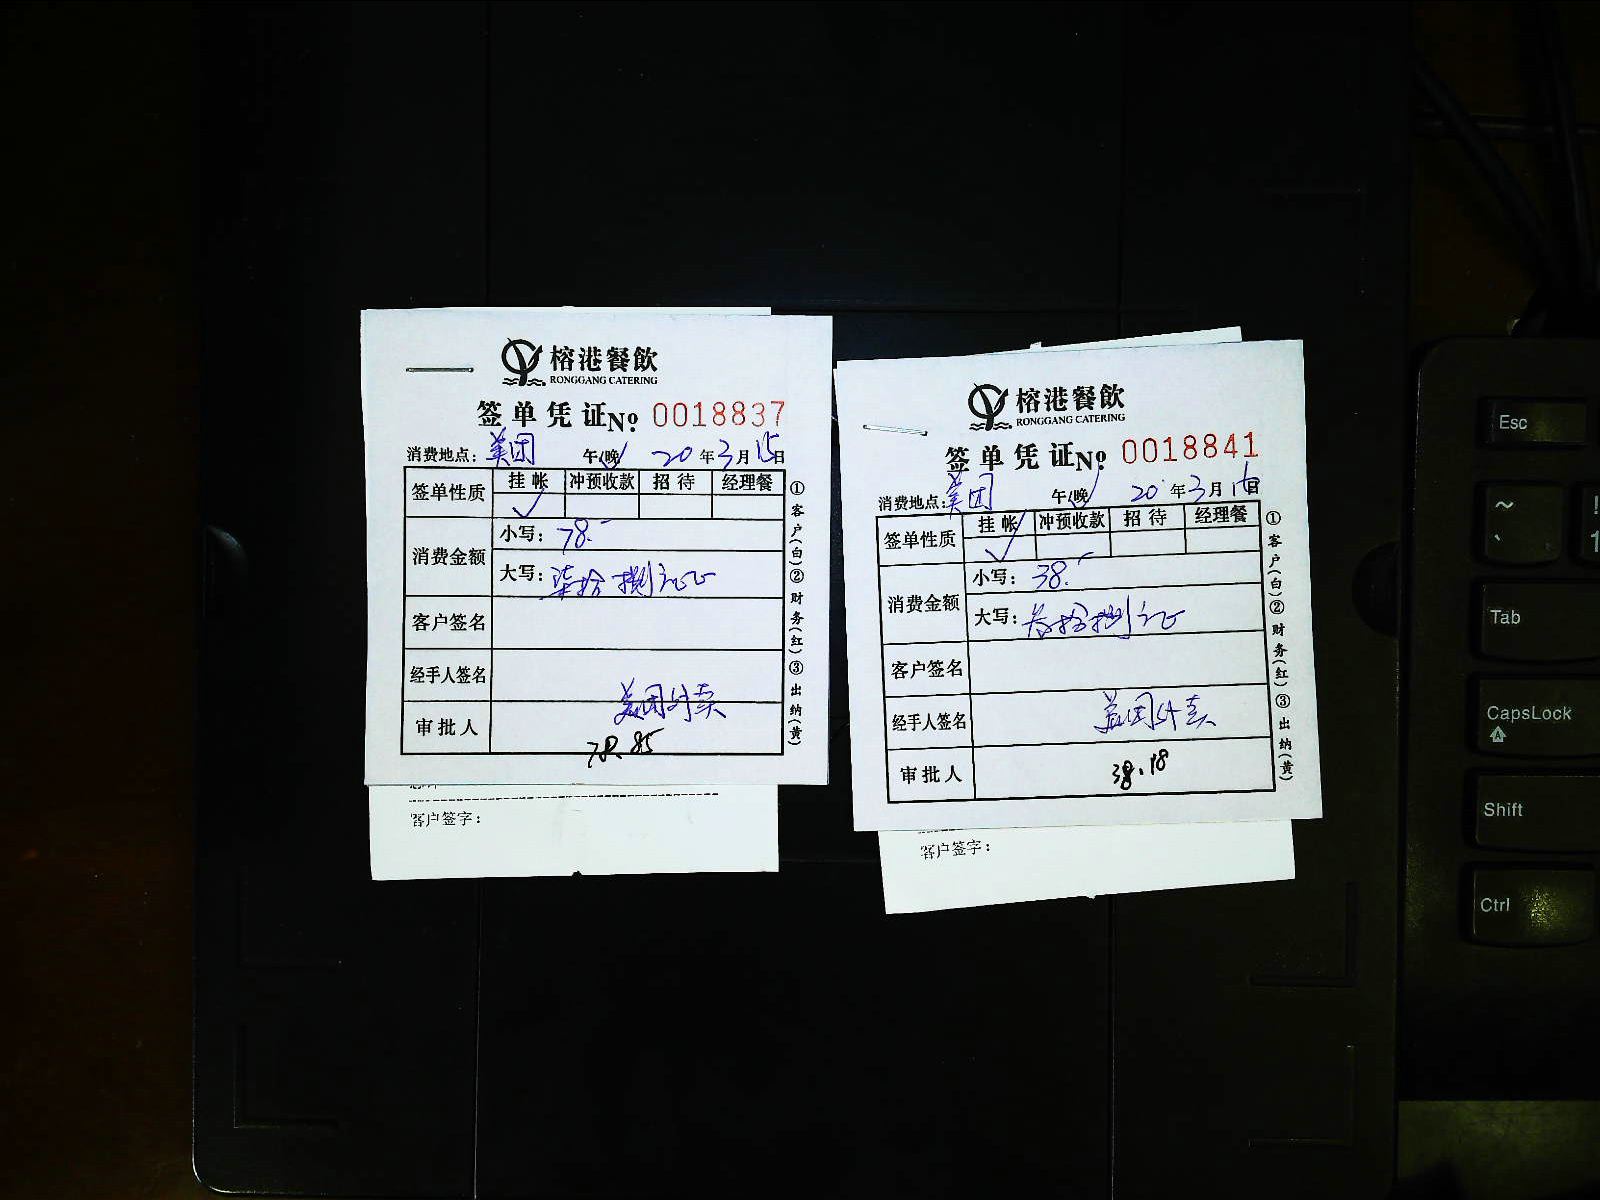 榕港餐飲
RONGGANG CATERING
签单凭证No 0018837
消费地点：美团 午(晚) 20年3月15日
签单性质 挂帐 冲预收款 招待 经理餐
✓
消费金额 小写：78.-
大写：柒拾捌元正
客户签名
经手人签名
美团外卖
审批人
78.85
①客户(白)②财务(红)③出纳(黄)
客户签字：
榕港餐飲
RONGGANG CATERING
签单凭证No 0018841
消费地点：美团 午(晚) 20年3月16日
签单性质 挂帐 冲预收款 招待 经理餐
✓
消费金额 小写：38.-
大写：叁拾捌元正
客户签名
经手人签名 美团外卖
审批人 38.18
①客户(白)②财务(红)③出纳(黄)
客户签字：
Esc
~
`
!
1
Tab
CapsLock
Shift
Ctrl